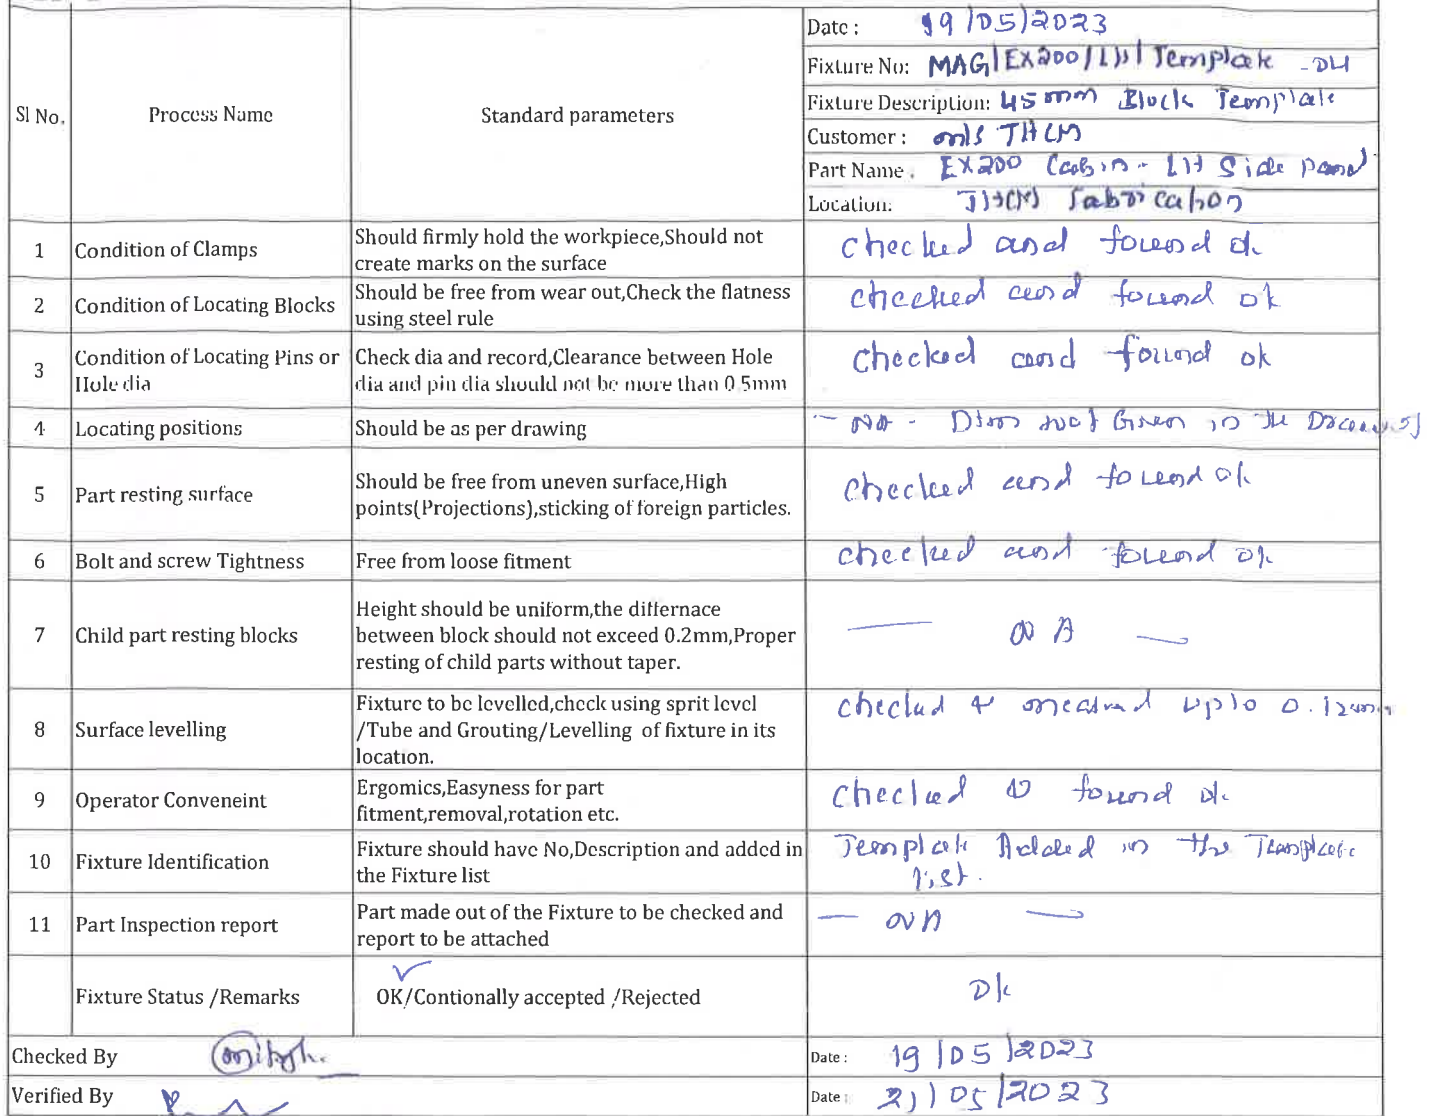 Date : 19/05/2023
Fixture No: MAG/EX200/LH/Template -04
Fixture Description: 45mm Block Template
Customer : m/s THCM
Part Name . EX200 Cabin - LH Side panel
Location: THCM Fabrication
Sl No. Process Name Standard parameters
1 Condition of Clamps Should firmly hold the workpiece,Should not
create marks on the surface
checked and found ok
2 Condition of Locating Blocks Should be free from wear out,Check the flatness
using steel rule
checked and found ok
3 Condition of Locating Pins or
Hole dia
Check dia and record,Clearance between Hole
dia and pin dia should not be more than 0.5mm
checked and found ok
4 Locating positions Should be as per drawing - NA - Dim not Given in the
5 Part resting surface Should be free from uneven surface,High
points(Projections),sticking of foreign particles.
checked and found ok
6 Bolt and screw Tightness Free from loose fitment checked and found ok
7 Child part resting blocks Height should be uniform,the differnace
between block should not exceed 0.2mm,Proper
resting of child parts without taper.
— NA —
8 Surface levelling Fixture to be levelled,check using sprit level
/Tube and Grouting/Levelling of fixture in its
location.
checked & measured upto 0.12mm
9 Operator Conveneint Ergomics,Easyness for part
fitment,removal,rotation etc.
checked & found ok
10 Fixture Identification Fixture should have No,Description and added in
the Fixture list
Template Added in the Template
list.
11 Part Inspection report Part made out of the Fixture to be checked and
report to be attached
— NA —
Fixture Status /Remarks OK/Contionally accepted /Rejected Ok
Checked By Date : 19/05/2023
Verified By Date : 21/05/2023